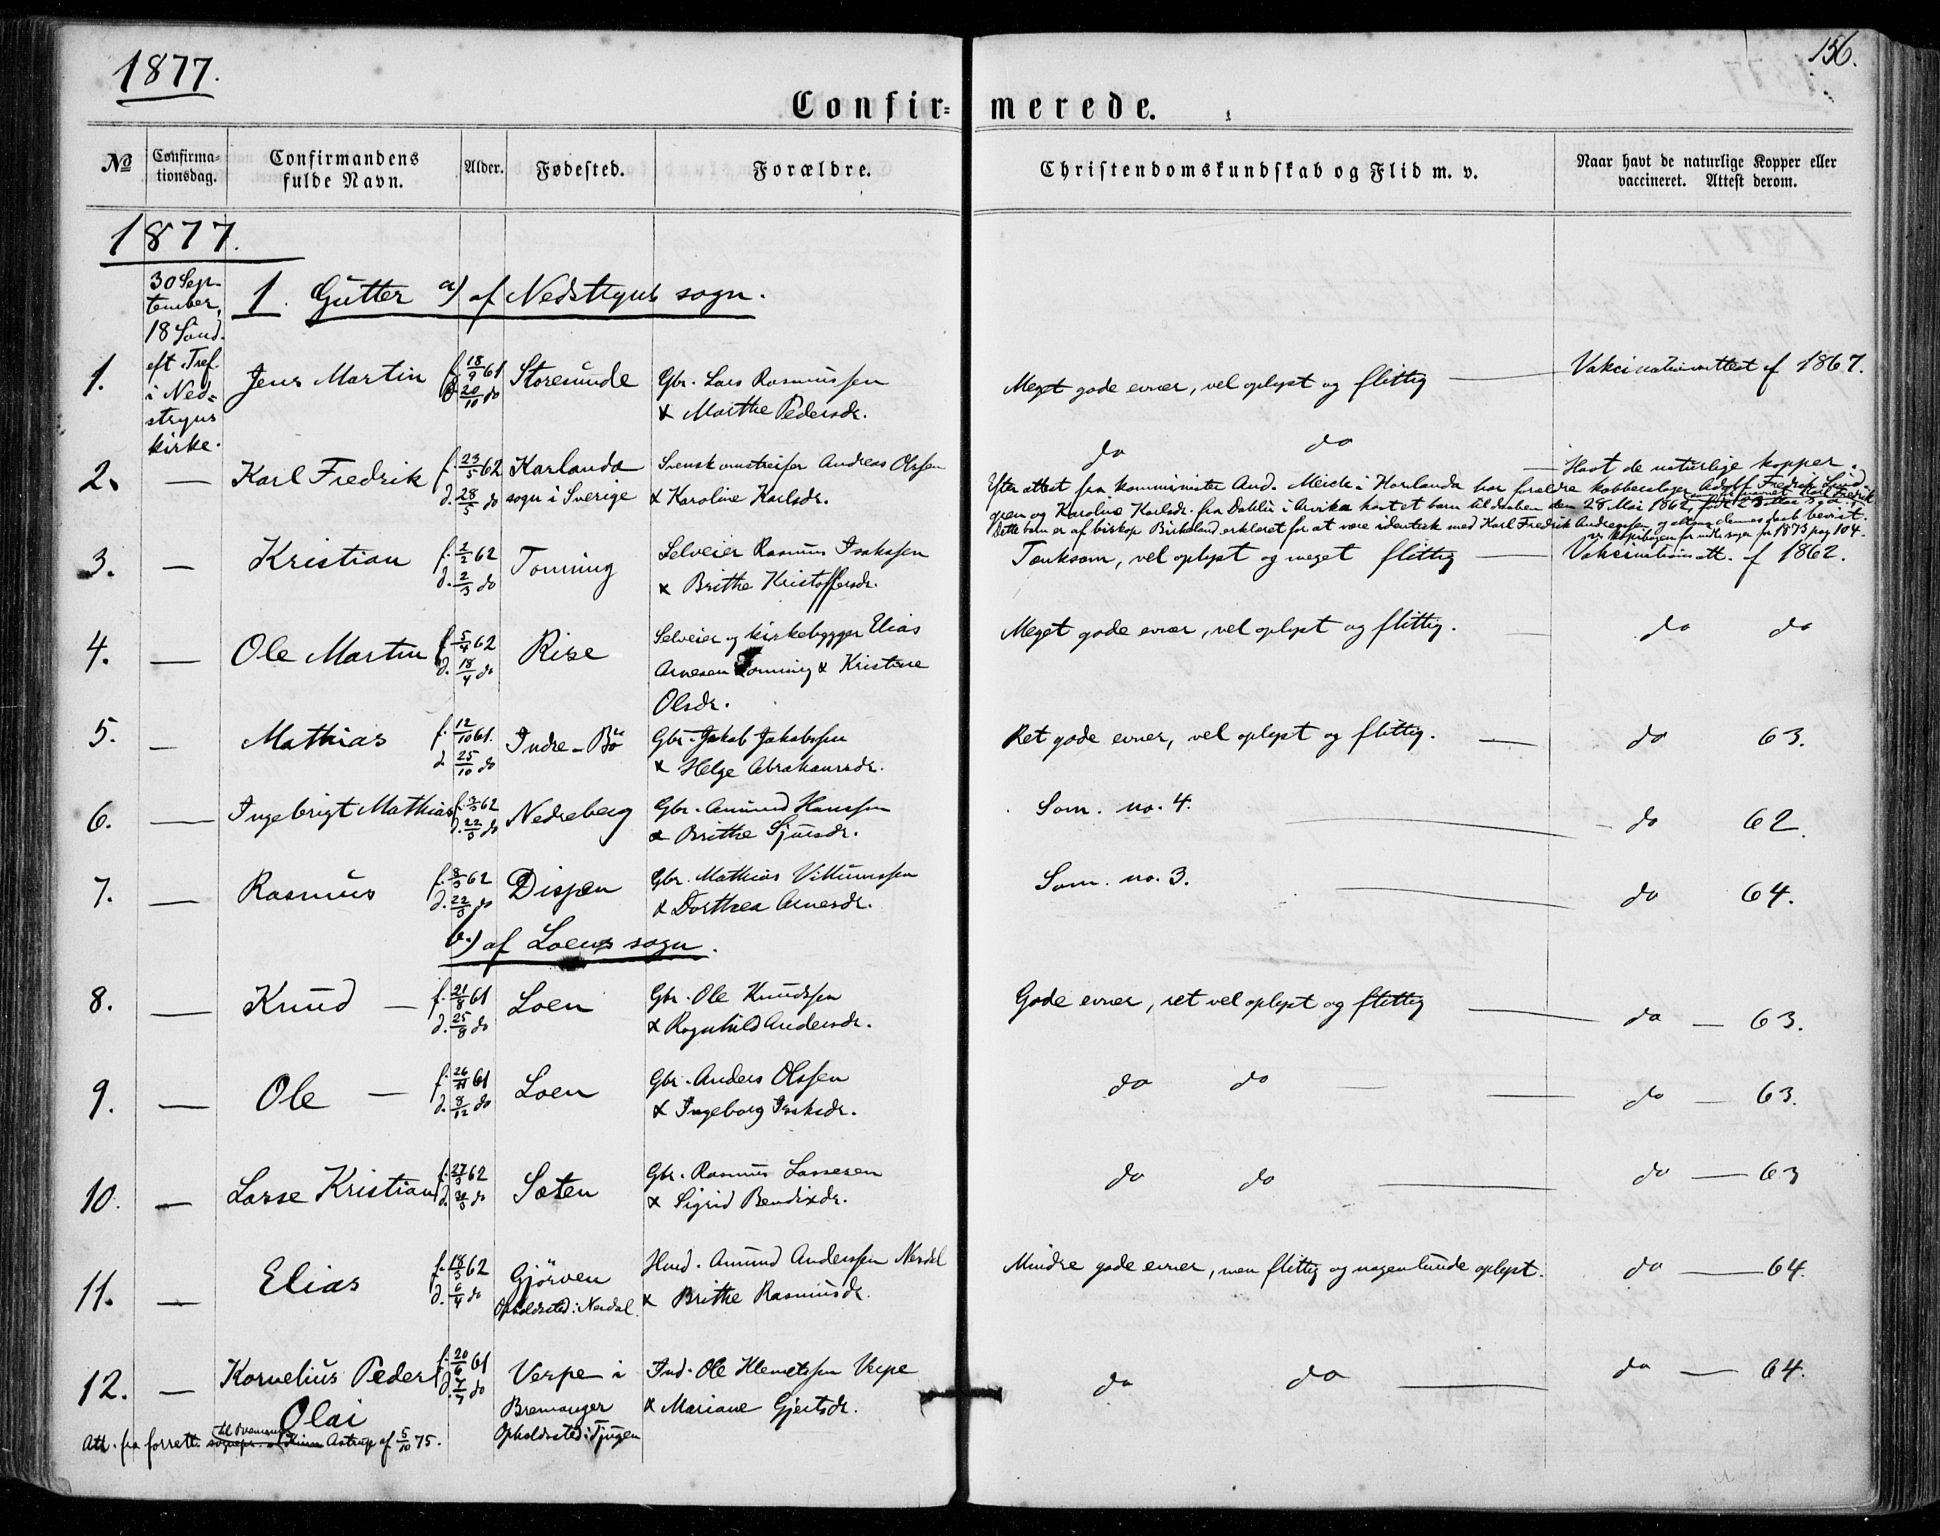 1877.
156.
Confir= merede.
No
Confirma-
tionsdag.
Confirmandens
fulde Navn.
Alder.
Fødested.
Forældre.
Christendomskundskab og Flid m. v.
Naar havt de naturlige Kopper eller
vaccineret. Attest derom.
1877.
30 Sep-
tember,
18 Sönd.
eft. Tref.
i Ned=
stryns
kirke.
1. Gutter a) af Nedstryns sogn.
1. Jens Martin f. 18/9 61 Storesunde Gbr. Lars Rasmussen Meget gode evner, vel oplyst og flittig — Vakcinationsattest af 1867.
d. 20/10 do & Marthe Pedersdr.
2. — Karl Fredrik f. 23/5 62 Karlanda Svensk omstreifer Andreas Olssen do do — Havt de naturlige kopper.
d. 28/5 do sogn i Sverige & Karoline Karlsdr.
Efter attest fra komminister And. Meich i Karlanda har forældre kobberslager Adolf Fredrik Lind-
gren og Karoline Karlsdr. fra Dahlen i Arvika havt et barn til daaben den 28 Mai 1862, født 23
Dette barn er af biskop Birkeland erklæret for at være identisk med Karl Fredrik Andreassen
for 1873 pag 104.
3. — Kristian f. 2/2 62 Tonning Selveier Rasmus Isakssen Tænksom, vel oplyst og meget flittig — Vakcinations att. af 1862.
d. 2/3 do & Brithe Kristoffersdr.
4. — Ole Martin f. 5/4 62 Rise Selveier og kirkebygger Elias Meget gode evner, vel oplyst og flittig. — do do
d. 18/4 do Arnesen Tonning & Kristine
Olsdr.
5. — Mathias f. 12/10 61. Indre-Bö Gbr. Jakob Jakobssen Ret gode evner, vel oplyst og flittig. — do 63.
d. 25/10 do & Helge Abrahamsdr.
6. — Ingebrigt Mathias f. 3/3 62 Nedreberg Gbr. Amund Hanssen Som. no. 4. — do 62.
d. 22/3 do & Brithe Sjursdr.
7. — Rasmus f. 8/3 62 Dispen Gbr. Mathias Villumssen Som. no. 3. — do 64.
d. 22/3 do & Dorthea Arnesdr.
b.) af Loens sogn.
8. — Knud — f. 21/8 61 Loen Gbr. Ole Knudssen Gode evner, ret vel oplyst og flittig — do — 63.
d. 25/8 do & Ragnhild Andersdr.
9. — Ole — f. 26/11 61 Loen Gbr. Anders Olssen do do — do — 63.
d. 8/12 do & Ingeborg Isaksdr.
10. — Lasse Kristian f. 27/3 62 Sæten Gbr. Rasmus Lassesen do do — do — 63
d. 30/3 do & Sigrid Bendixdr.
11. — Elias f. 18/3 62 Gjörven Husd. Amund Anderssen Nesdal Mindre gode evner, men flittig og nogenlunde oplyst. do — 64.
d. 6/4 do Opholdssted: Nesdal. & Brithe Rasmusdr.
12. — Kornelius Peder f. 20/6 61 Verpe i Ind. Ole Klemetssen Verpe do do — do — 64.
d. 7/7 do Bremanger & Mariane Gjertsdr.
Olai
Opholdssted: Tjugen
Att. fra forrett. sognepr. til Kinn Astrup af 5/10 75.